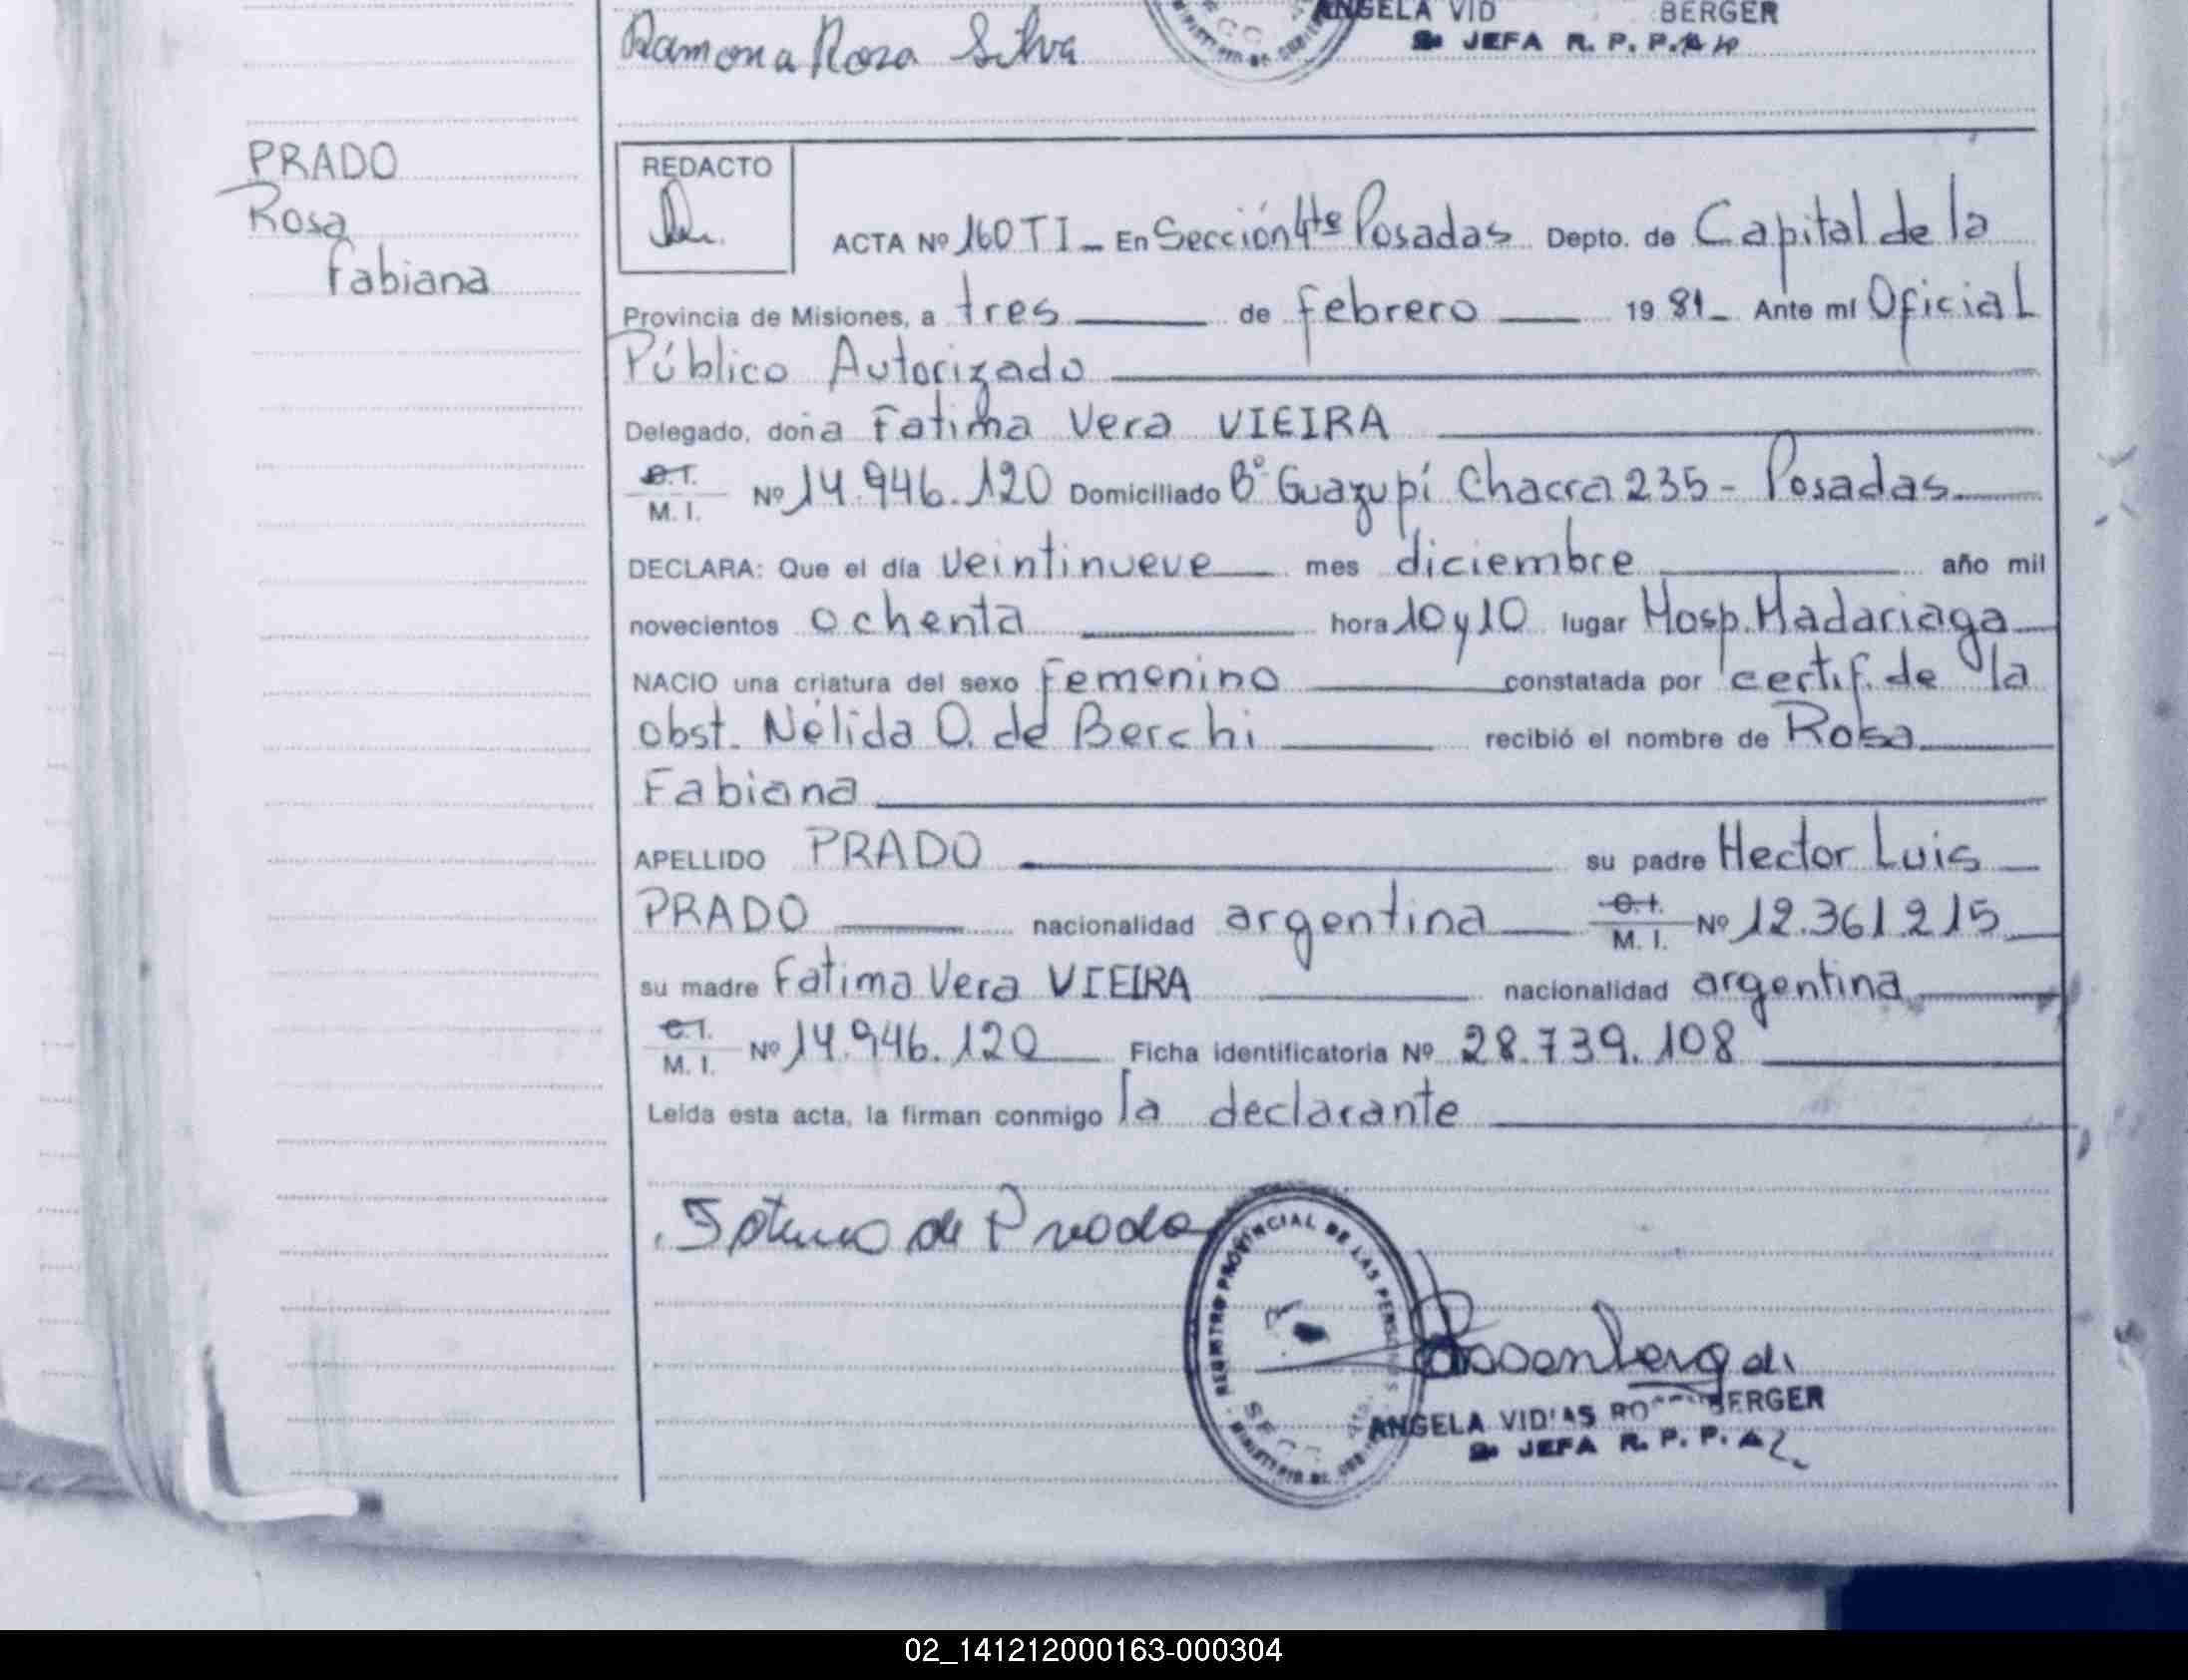 ANGELA VID BERGER
JEFA R. P. P.
Ramona Rosa Silva
PRADO
Rosa
Fabiana
REDACTO
ACTA Nº 160 T I - En Sección 4ta Posadas Depto. de Capital de la
Provincia de Misiones, a tres de febrero 1981 Ante mí Oficial
Público Autorizado
Delegado, doña Fatima Vera VIEIRA
C.I.
M. I. Nº 14.946.120 Domiciliado Bº Guazupí Chacra 235 - Posadas
DECLARA: Que el día veintinueve mes diciembre año mil
novecientos ochenta hora 10 y 10 lugar Hosp. Madariaga
NACIO una criatura del sexo femenino constatada por certif. de la
obst. Nélida O. de Berchi recibió el nombre de Rosa
Fabiana
APELLIDO PRADO su padre Hector Luis
PRADO nacionalidad argentina C.I.
M. I. Nº 12.361.215
su madre Fatima Vera VIEIRA nacionalidad argentina
C.I.
M. I. Nº 14.946.120 Ficha identificatoria Nº 28.739.108
Leída esta acta, la firman conmigo la declarante
de Prado
REGISTRO PROVINCIAL DE LAS PERSONAS
MINISTERIO DE
SECC 4ta.
ANGELA VIDAS RO BERGER
JEFA R. P. P.
02_141212000163-000304